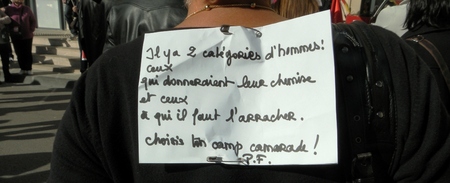 Il y a 2 catégories d'hommes:
ceux
qui donneraient leur chemise
et ceux
à qui il faut l'arracher.
choisis ton camp camarade!
P.F.